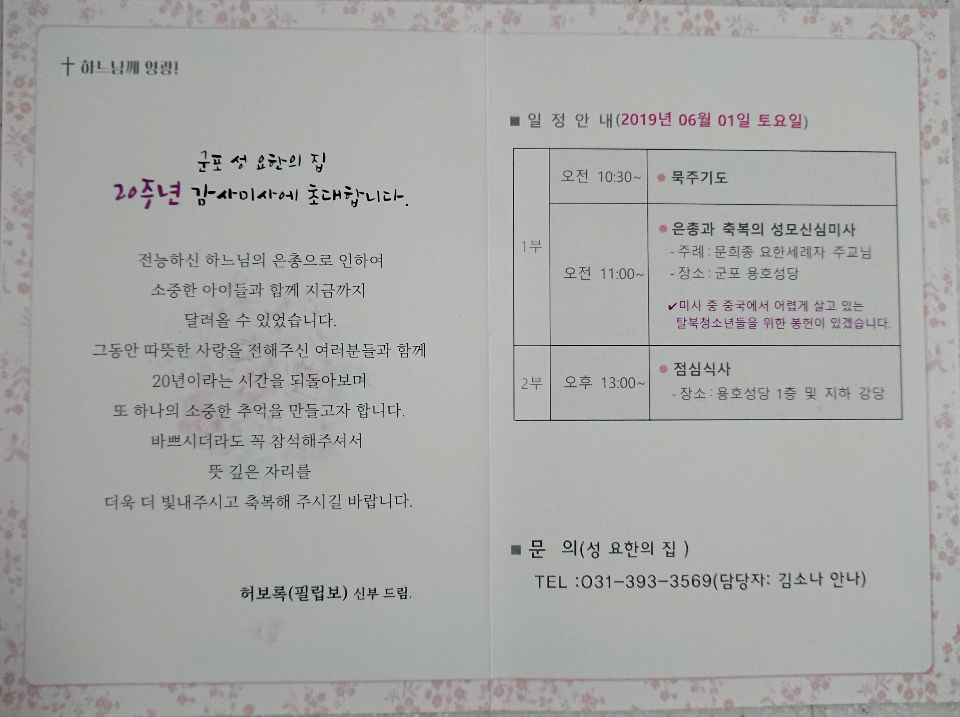 † 하느님께 영광!
군포 성 요한의 집
20주년 감사미사에 초대합니다.
전능하신 하느님의 은총으로 인하여
소중한 아이들과 함께 지금까지
달려올 수 있었습니다.
그동안 따뜻한 사랑을 전해주신 여러분들과 함께
20년이라는 시간을 되돌아보며
또 하나의 소중한 추억을 만들고자 합니다.
바쁘시더라도 꼭 참석해주셔서
뜻 깊은 자리를
더욱 더 빛내주시고 축복해 주시길 바랍니다.
허보록(필립보) 신부 드림.
■ 일 정 안 내(2019년 06월 01일 토요일)
1부
오전 10:30~
● 묵주기도
오전 11:00~
● 은총과 축복의 성모신심미사
- 주례 : 문희종 요한세례자 주교님
- 장소 : 군포 용호성당
✔미사 중 중국에서 어렵게 살고 있는
탈북청소년들을 위한 봉헌이 있겠습니다.
2부
오후 13:00~
● 점심식사
- 장소 : 용호성당 1층 및 지하 강당
■ 문 의(성 요한의 집 )
TEL :031-393-3569(담당자: 김소나 안나)